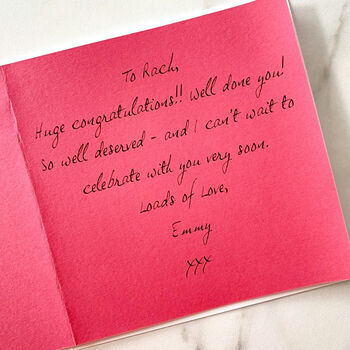 To Rach,
Huge congratulations!! Well done you!
So well deserved - and I can't wait to
celebrate with you very soon.
Loads of Love,
Emmy
xxx